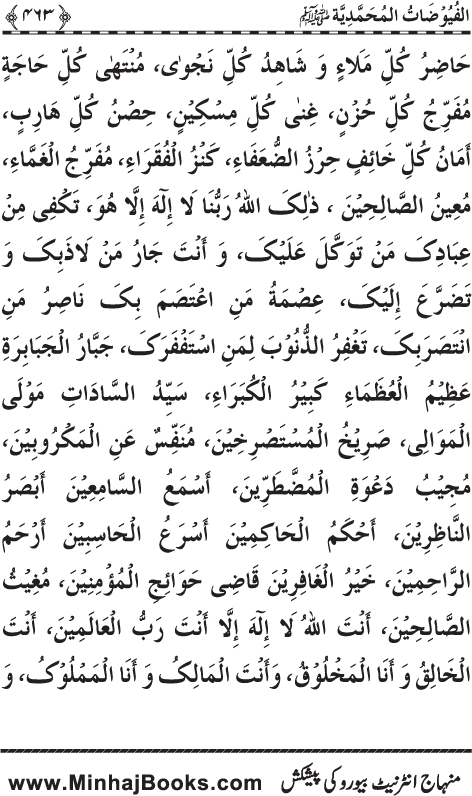 الفُيُوْضَاتُ المُحَمَّدِيَّة ﷺ ﴿۴۶۳﴾
حَاضِرُ كُلِّ مَلَاءٍ وَ شَاهِدُ كُلِّ نَجْوٰی، مُنْتَهٰی كُلِّ حَاجَةٍ
مُفَرِّجُ كُلِّ حُزْنٍ، غِنٰی كُلِّ مِسْكِيْنٍ، حِصْنُ كُلِّ هَارِبٍ،
أَمَانُ كُلِّ خَائِفٍ حِرْزُ الضُّعَفَاءِ، كَنْزُ الْفُقَرَاءِ، مُفَرِّجُ الْغَمَّاءِ،
مُعِيْنُ الصَّالِحِيْنَ ، ذٰلِکَ اللهُ رَبُّنَا لَا إِلٰهَ إِلَّا هُوَ، تَكْفِی مِنْ
عِبَادِکَ مَنْ تَوَكَّلَ عَلَيْکَ، وَ أَنْتَ جَارُ مَنْ لَاذَبِکَ وَ
تَضَرَّعَ إِلَيْکَ، عِصْمَةُ مَنِ اعْتَصَمَ بِکَ نَاصِرُ مَنِ
انْتَصَرَبِکَ، تَغْفِرُ الذُّنُوْبَ لِمَنِ اسْتَغْفَرَکَ، جَبَّارُ الْجَبَابِرَةِ
عَظِيْمُ الْعُظَمَاءِ كَبِيْرُ الْكُبَرَاءِ، سَيِّدُ السَّادَاتِ مَوْلَی
الْمَوَالِی، صَرِيْخُ الْمُسْتَصْرِخِيْنَ، مُنَفِّسٌ عَنِ الْمَكْرُوْبِيْنَ،
مُجِيْبُ دَعْوَةِ الْمُضْطَرِّيْنَ، أَسْمَعُ السَّامِعِيْنَ أَبْصَرُ
النَّاظِرِيْنَ، أَحْكَمُ الْحَاكِمِيْنَ أَسْرَعُ الْحَاسِبِيْنَ أَرْحَمُ
الرَّاحِمِيْنَ، خَيْرُ الْغَافِرِيْنَ قَاضِی حَوَائِجِ الْمُؤْمِنِيْنَ، مُغِيْثُ
الصَّالِحِيْنَ، أَنْتَ اللهُ لَا إِلٰهَ إِلَّا أَنْتَ رَبُّ الْعَالَمِيْنَ، أَنْتَ
الْخَالِقُ وَ أَنَا الْمَخْلُوْقُ، وَأَنْتَ الْمَالِکُ وَ أَنَا الْمَمْلُوْکُ، وَ
منہاج انٹرنیٹ بیورو کی پیشکش www.MinhajBooks.com